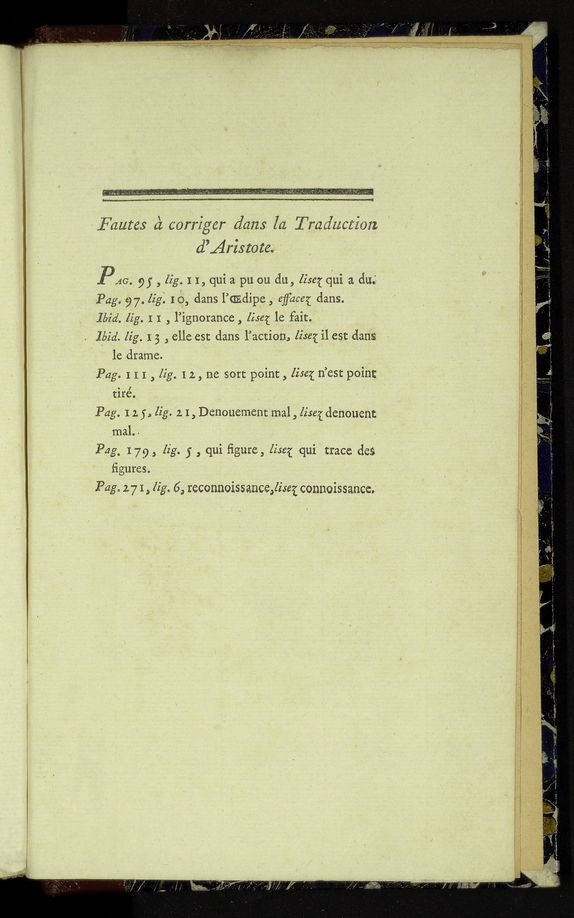 Fautes à corriger dans la Traduction
d'Aristote.
PAG. 95, lig. 11, qui a pu ou du, lisez qui a du.
Pag. 97. lig. 10, dans l'Œdipe, effacez dans.
Ibid. lig. 11, l'ignorance, lisez le fait.
Ibid. lig. 13, elle est dans l'action, lisez il est dans
le drame.
Pag. 111, lig. 12, ne sort point, lisez n'est point
tiré.
Pag. 125, lig. 21, Denouement mal, lisez denouent
mal.
Pag. 179, lig. 5, qui figure, lisez qui trace des
figures.
Pag. 271, lig. 6, reconnoissance, lisez connoissance.